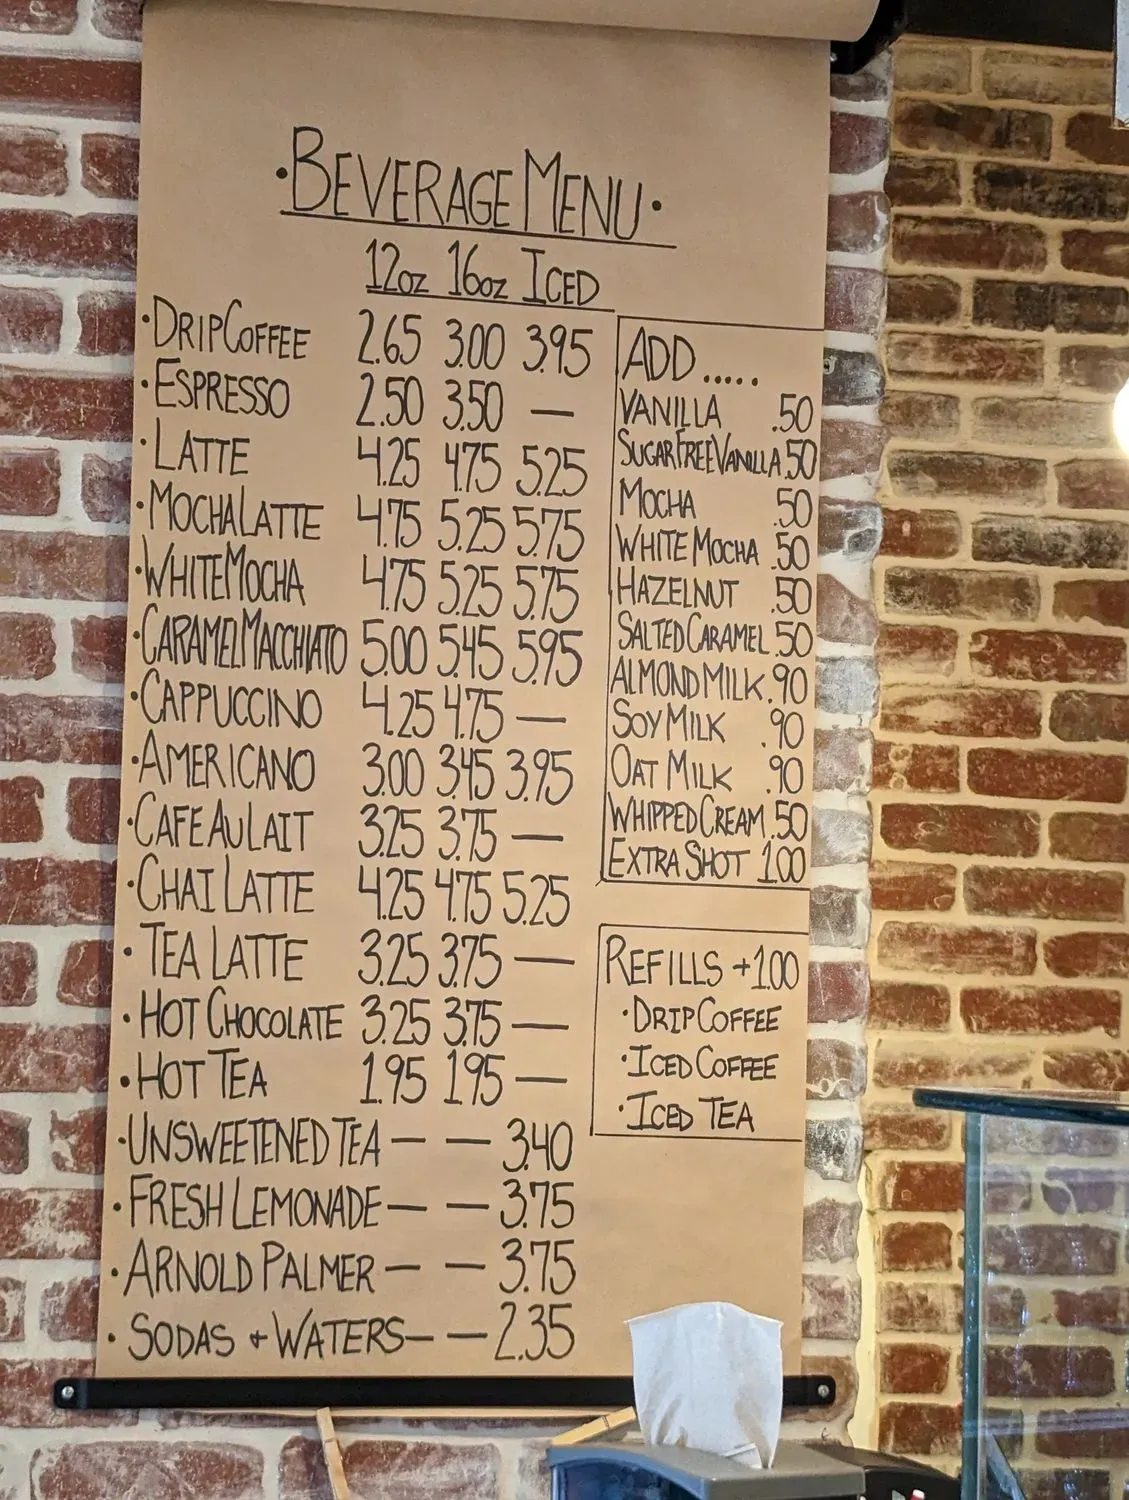 ·BEVERAGE MENU·
12oz 16oz ICED
·DRIP COFFEE 2.65 3.00 3.95
·ESPRESSO 2.50 3.50 —
·LATTE 4.25 4.75 5.25
·MOCHA LATTE 4.75 5.25 5.75
·WHITE MOCHA 4.75 5.25 5.75
·CARAMEL MACCHIATO 5.00 5.45 5.95
·CAPPUCCINO 4.25 4.75 —
·AMERICANO 3.00 3.45 3.95
·CAFE AU LAIT 3.25 3.75 —
·CHAI LATTE 4.25 4.75 5.25
·TEA LATTE 3.25 3.75 —
·HOT CHOCOLATE 3.25 3.75 —
·HOT TEA 1.95 1.95 —
·UNSWEETENED TEA — — 3.40
·FRESH LEMONADE — — 3.75
·ARNOLD PALMER — — 3.75
·SODAS + WATERS — — 2.35
ADD.....
VANILLA .50
SUGAR FREE VANILLA .50
MOCHA .50
WHITE MOCHA .50
HAZELNUT .50
SALTED CARAMEL .50
ALMOND MILK .90
SOY MILK .90
OAT MILK .90
WHIPPED CREAM .50
EXTRA SHOT 1.00
REFILLS +1.00
·DRIP COFFEE
·ICED COFFEE
·ICED TEA